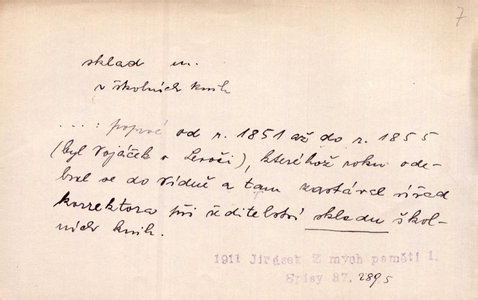 7
sklad m.
v školních knih
....: poprvé od r. 1851 až do r. 1855
(byl Vojáček v Levoči), kteréhož roku ode-
bral se do Vídně a tam zastával úřad
korrektora při ředitelství skladu škol-
ních knih.
1911 Jirásek Z mých pamětí 1.
Spisy 87. 2895